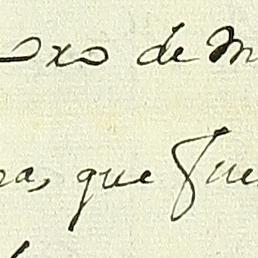 oxo de M
ra, que Fue